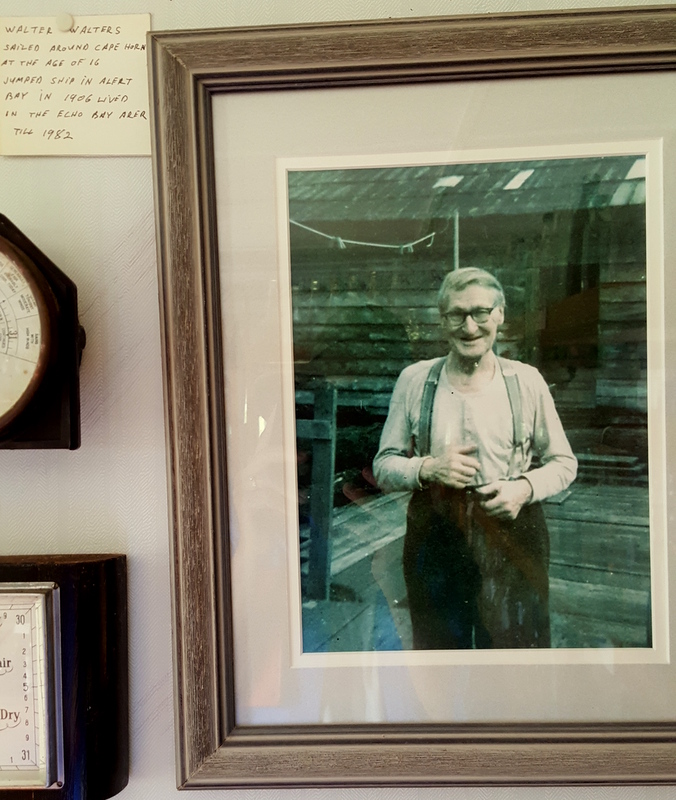 WALTER WALTERS
SAILED AROUND CAPE HORN
AT THE AGE OF 16
JUMPED SHIP IN ALERT
BAY IN 1906 LIVED
IN THE ECHO BAY ARER
TILL 1982
9
30
1
2
3
4
5
6
7
8
9
31
1
air
Dry